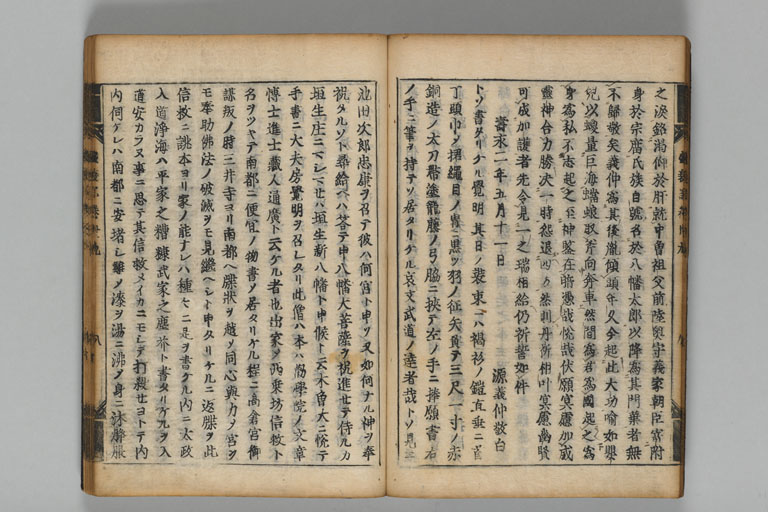 之涙銘渇仰於肝就中曽祖父前陸奥守義家朝臣寄附
身於宗廟氏族自號名於八幡太郎以降為其門葉者無
不歸敬矣義仲為其後胤傾頭年久今起此大功喩如嬰
兒以螺量巨海蟷螂取斧向奔車然間為君為國起之為
身為私不志起之神鑒在暗憑哉悦哉伏願冥慮加威
靈神合力勝決一時怨退四方然則丹祈相叶冥慮幽賢
可成加護者先令見一之瑞相給仍祈誓如件
壽永二年五月十一日 源義仲敬白
トソ書タリケル覺明其日ノ裝束ニハ褐衫ノ鎧直垂ニ首
丁頭巾シ縄目ノ冑ニ黒ツ羽ノ征矢負テ三尺一寸ノ赤
銅造ノ太刀帶塗籠藤ノ弓脇ニ挾テ左ノ手ニ捧願書右
ノ手ニ筆ヲ持テソ居タリケル哀文武道ノ達者哉トソ見エ
池田次郎忠康ヲ召テ彼ハ何宮ト申ソ又如何ナル神ヲ奉
祝タルソト尋給ヘハ答テ申八幡大菩薩ヲ祝進セテ侍ルカ
垣生庄ニマシマセハ垣生新八幡ト申候ト云木曽大ニ悦テ
手書ニ大夫房覺明ヲ召レタリ此僧ハ本ハ勸學院ノ文章
博士進士藏人通廣ト云ケル者也出家シテ西乗坊信救ト
名ヲツヒテ南都ニ便宜ノ物書ノ居タリケル程ニ高倉宮御
謀叛ノ時三井寺ヨリ南都ヘ牒状ヲ越ノ同心與力ノ宮ヲ
モ奉助佛法ノ破滅ヲモ見繼ヘシト申タリケルニ返牒ヲ此
信救ニ誂本ヨリ家ノ能ナレハ種々ニ是ヲ書ケル内ニ太政
入道浄海ハ平家之糟糠武家之塵芥ト書タリケルヲ入
道安カラヌ事ニ思テ其信救メイカニモシテ打殺セヨトテ内
内伺ケレハ南都ニ安堵シ難ノ漆ヲ湯ニ沸メ身ニ沐腫脹